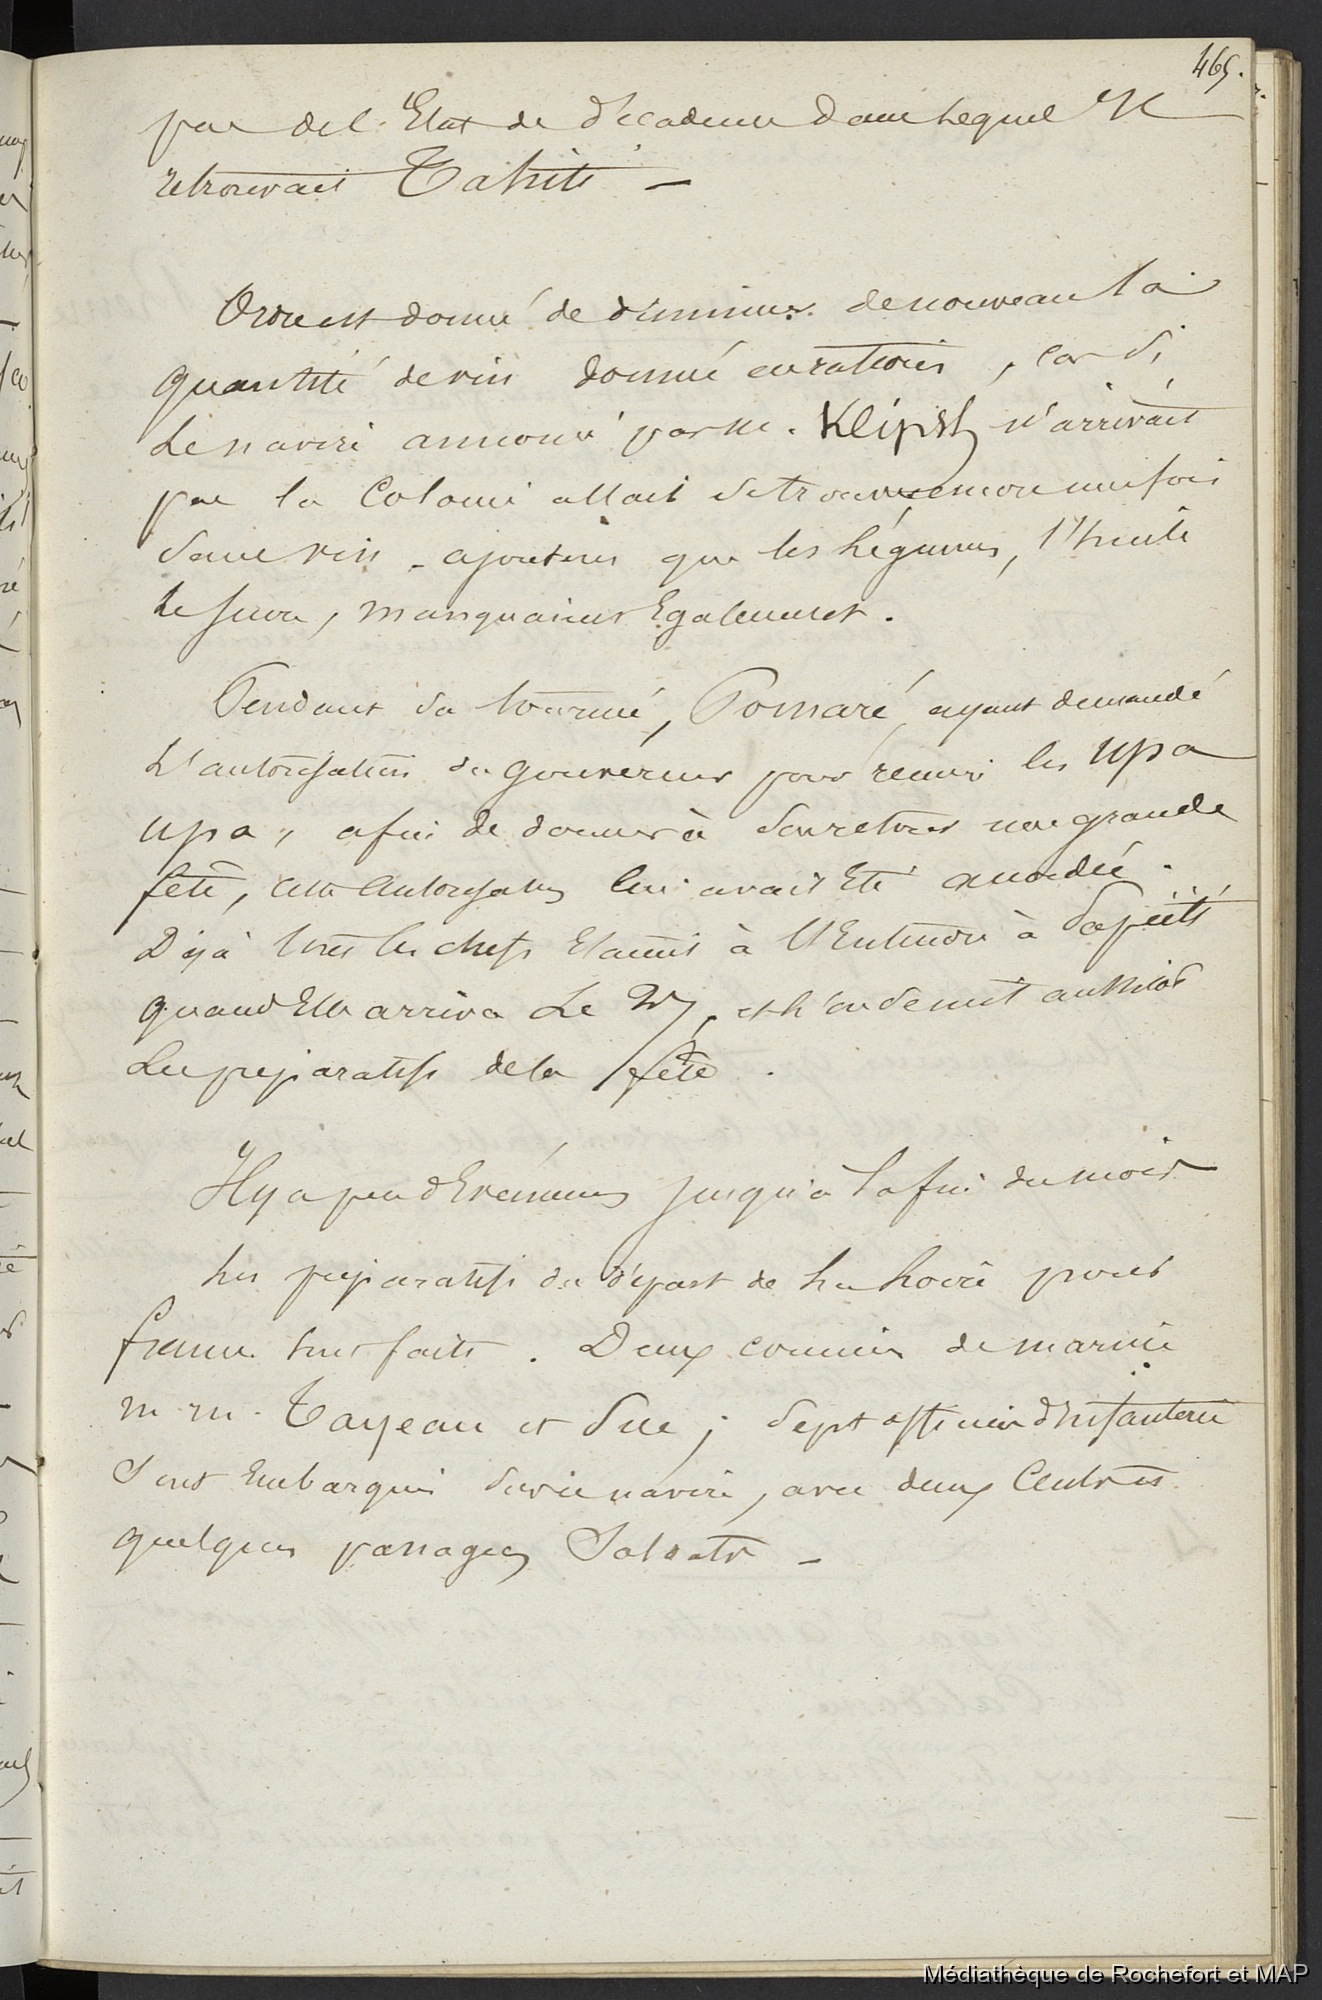 465.
par de l'Etat de décadence dans lequel il
retrouvait Tahiti —
Ordre est donné de diminuer de nouveau la
quantité de vin donné en ration, car si
le navire annoncé par M. Kleipst n'arrivait
pas la Colonie allait se trouver encore une fois
sans vin - ajoutons que les légumes, l'huile
le sucre, manquaient Egalement.
Pendant sa tournée, Pomaré, ayant demandé
l'autorisation du gouverneur pour réunir les upa
upa, afin de donner à son retour une grande
fête, cette autorisation lui avait été accordée.
Déjà tous les chefs étaient à l'Entendre à Papeïti
quand Elle arriva le 27, et l'on se mit aussitôt
aux préparatifs de la fête.
Il y a peu d'Evénements jusqu'à la fin du mois
les préparatifs du départ de la Loire pour
france sont faits. Deux commis de marine
m.m. Tayeau et Sue; sept officiers d'infanterie
sont Embarqués sur ce navire, avec deux Centres
quelques passagers Soldats —
Médiathèque de Rochefort et MAP